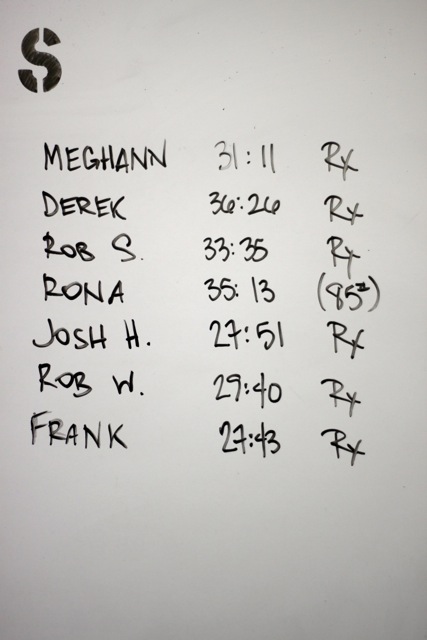 S
MEGHANN 31:11 Rx
DEREK 36:26 Rx
ROB S. 33:35 Rx
RONA 35:13 (85#)
JOSH H. 27:51 Rx
ROB W. 29:40 Rx
FRANK 27:43 Rx